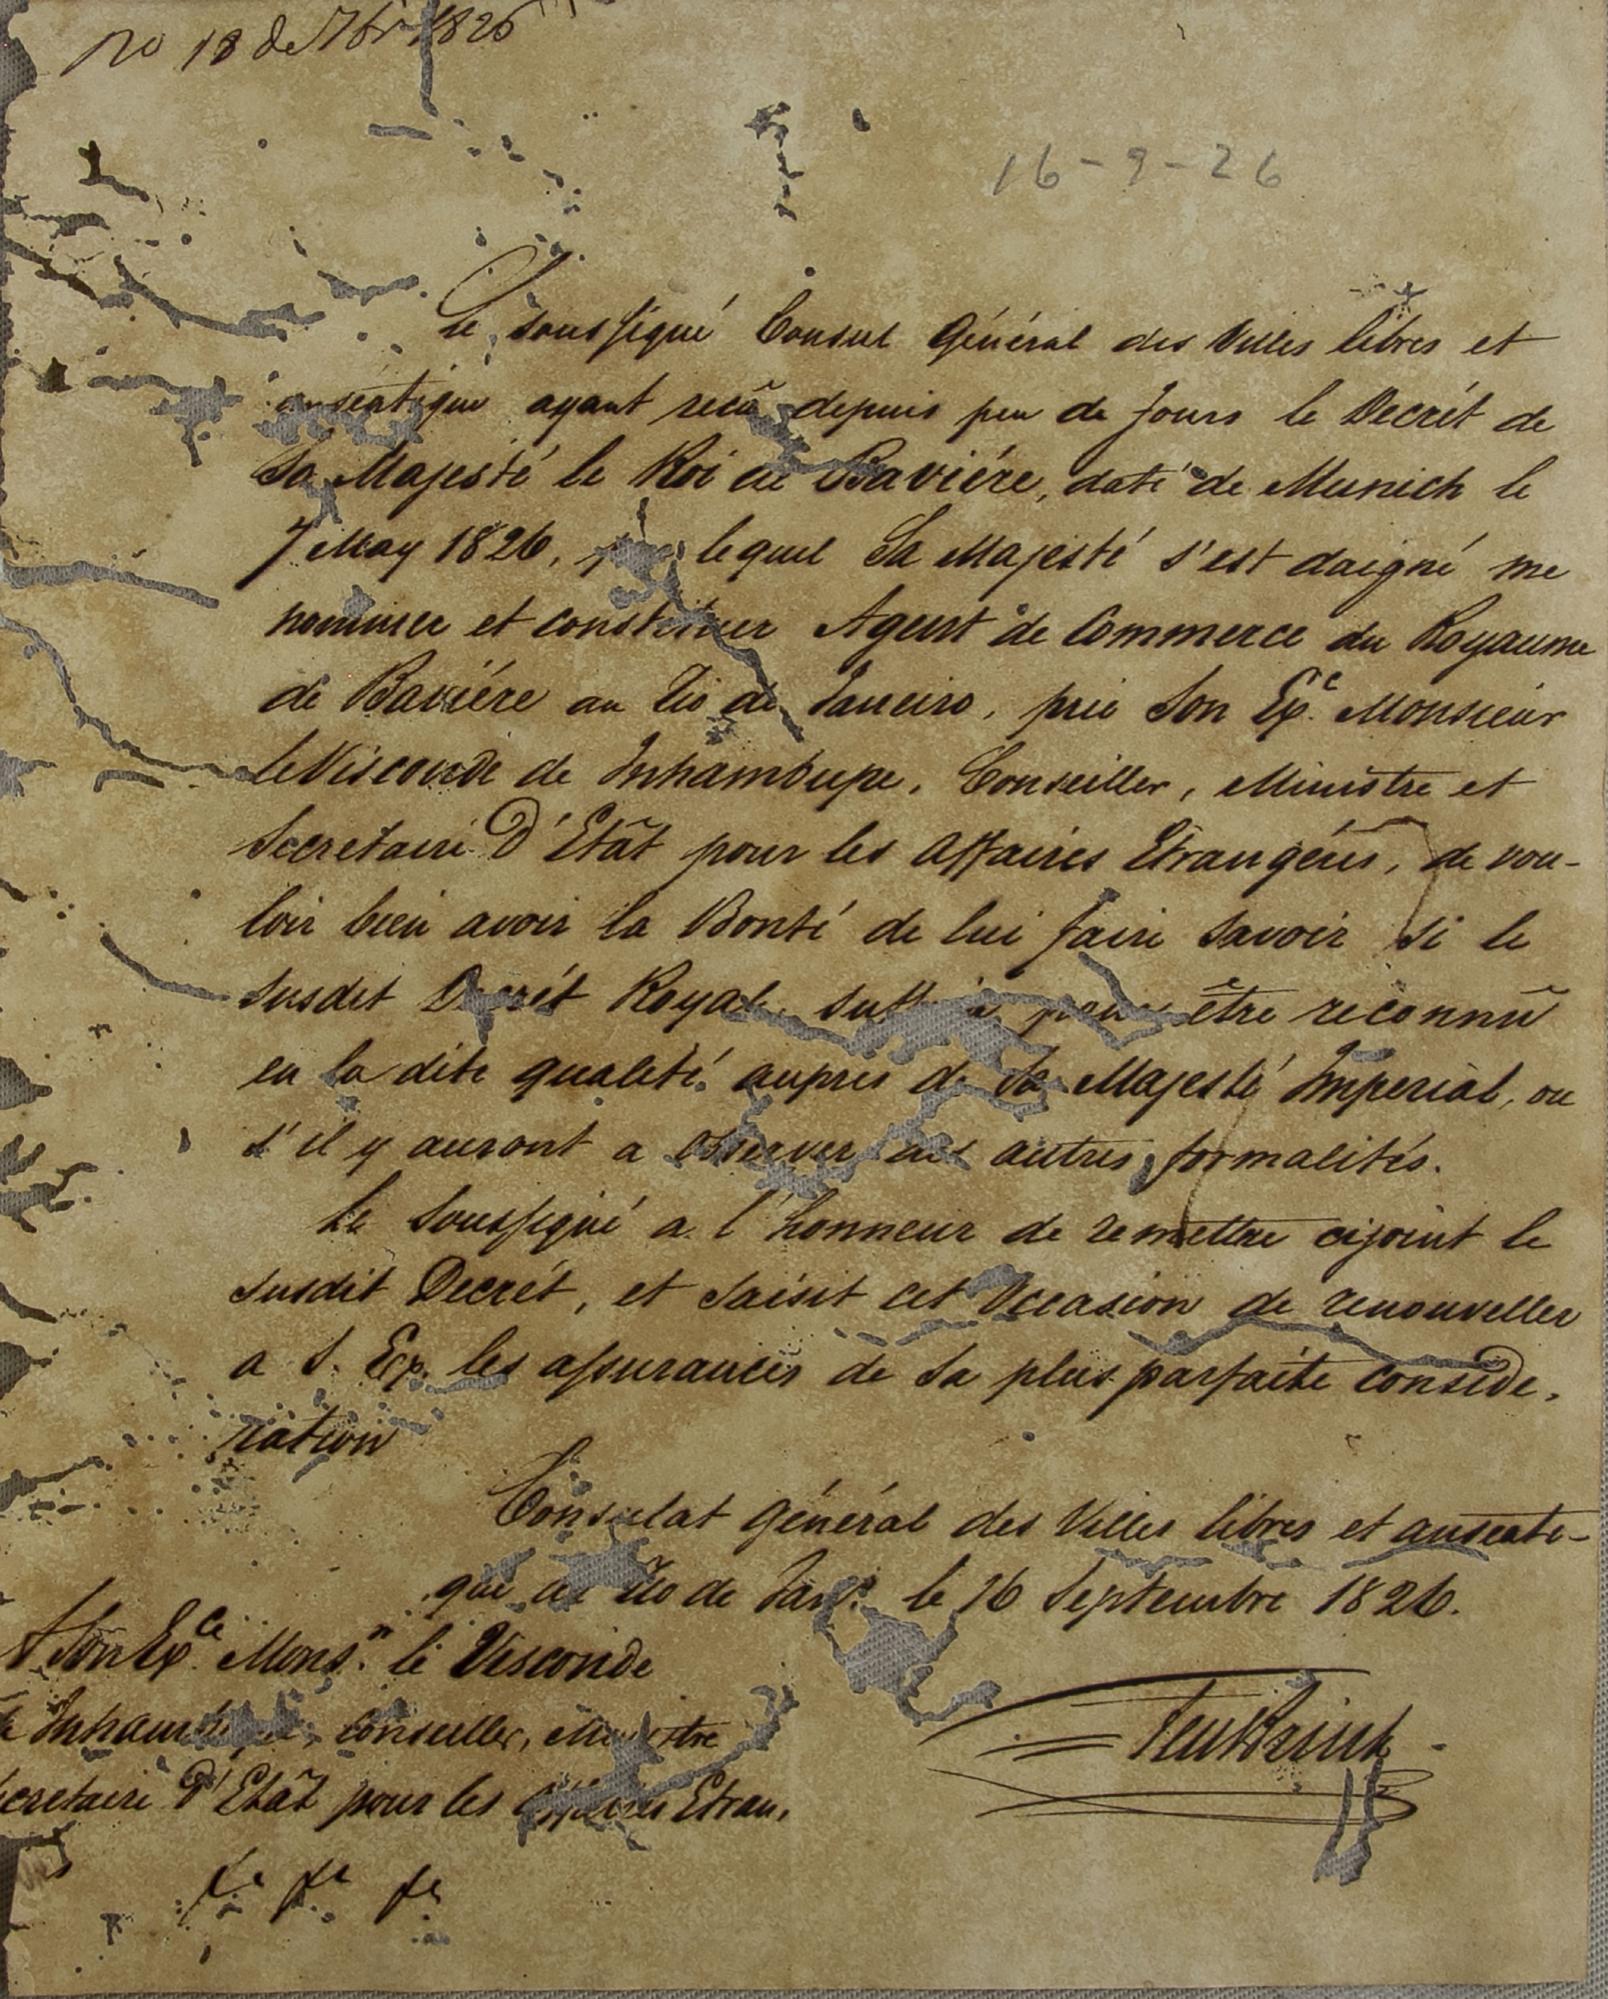 no 18 de 7br 1826
16-9-26
Le Soussigné Consul Général des Villes libres et
anseatique ayant recû depuis peu de Jours le Decrét de
Sa Majesté le Roi de Baviére, daté de Munich le
7 May 1826, par lequel Sa Majesté s'est daigné me
nommer et constituer Agent de Commerce du Royaume
de Baviére au Rio de Janeiro, prie Son Exce. Monsieur
le Visconde de Inhambupe, Conseiller, Ministre et
Secretaire D'Etât pour les Affaires Etrangéres, de vou-
loir bien avoir la Bonté de lui faire Savoir Si le
Susdit Decrét Royal, suffira pour être reconnû
en la dite qualité aupres de Sa Majesté Imperial, ou
s'il y auront a observer autres formalités.
Le Soussigné a l'honneur de remettre cijoint le
Susdit Decrét, et Saisit cet Occasion de renouveller
a S. Ex. les assurances de Sa plus parfaite conside-
ration
Consulat Général des Villes libres et anseati-
que au Rio de Janro. le 16 Septembre 1826.
A Son Exce. Monsr. le Visconde
de Inhambupe, Conseiller, Ministre
Secretaire D'Etât pour les Affaires Etran,